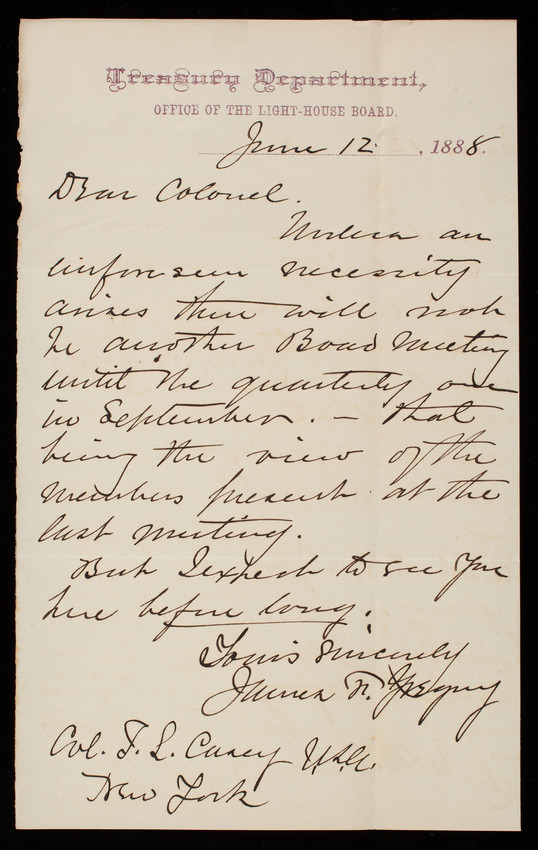 Treasury Department,
OFFICE OF THE LIGHT-HOUSE BOARD.
June 12, 1888.
Dear Colonel.
Unless an
unforeseen necessity
arises there will not
be another Board Meeting
until the quarterly one
in September. – that
being the view of the
members present at the
last meeting.
But I expect to see you
here before long.
Yours sincerely
James F. Gregory
Col. T. L. Casey U.S.A.
New York